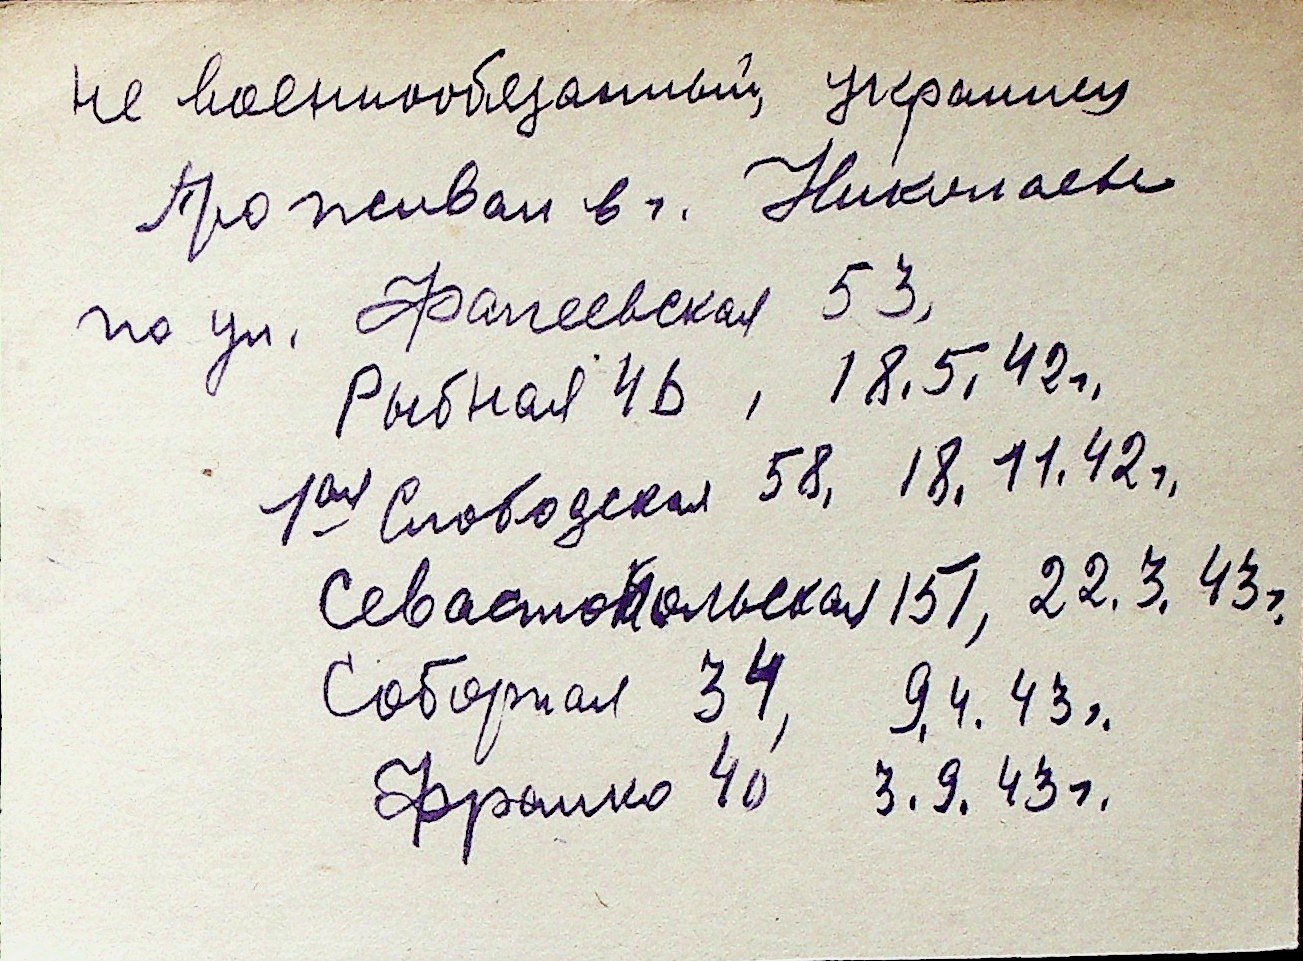 не военнообязанный, украинец
Проживал в г. Николаеве
по ул. Фалеевская 53,
Рыбная 4Б, 18.5.42г.
1ая Слободская 58, 18.11.42г.
Севастопольская 151, 22.3.43г.
Соборная 34, 9.4.43г.
Франко 40 3.9.43г.